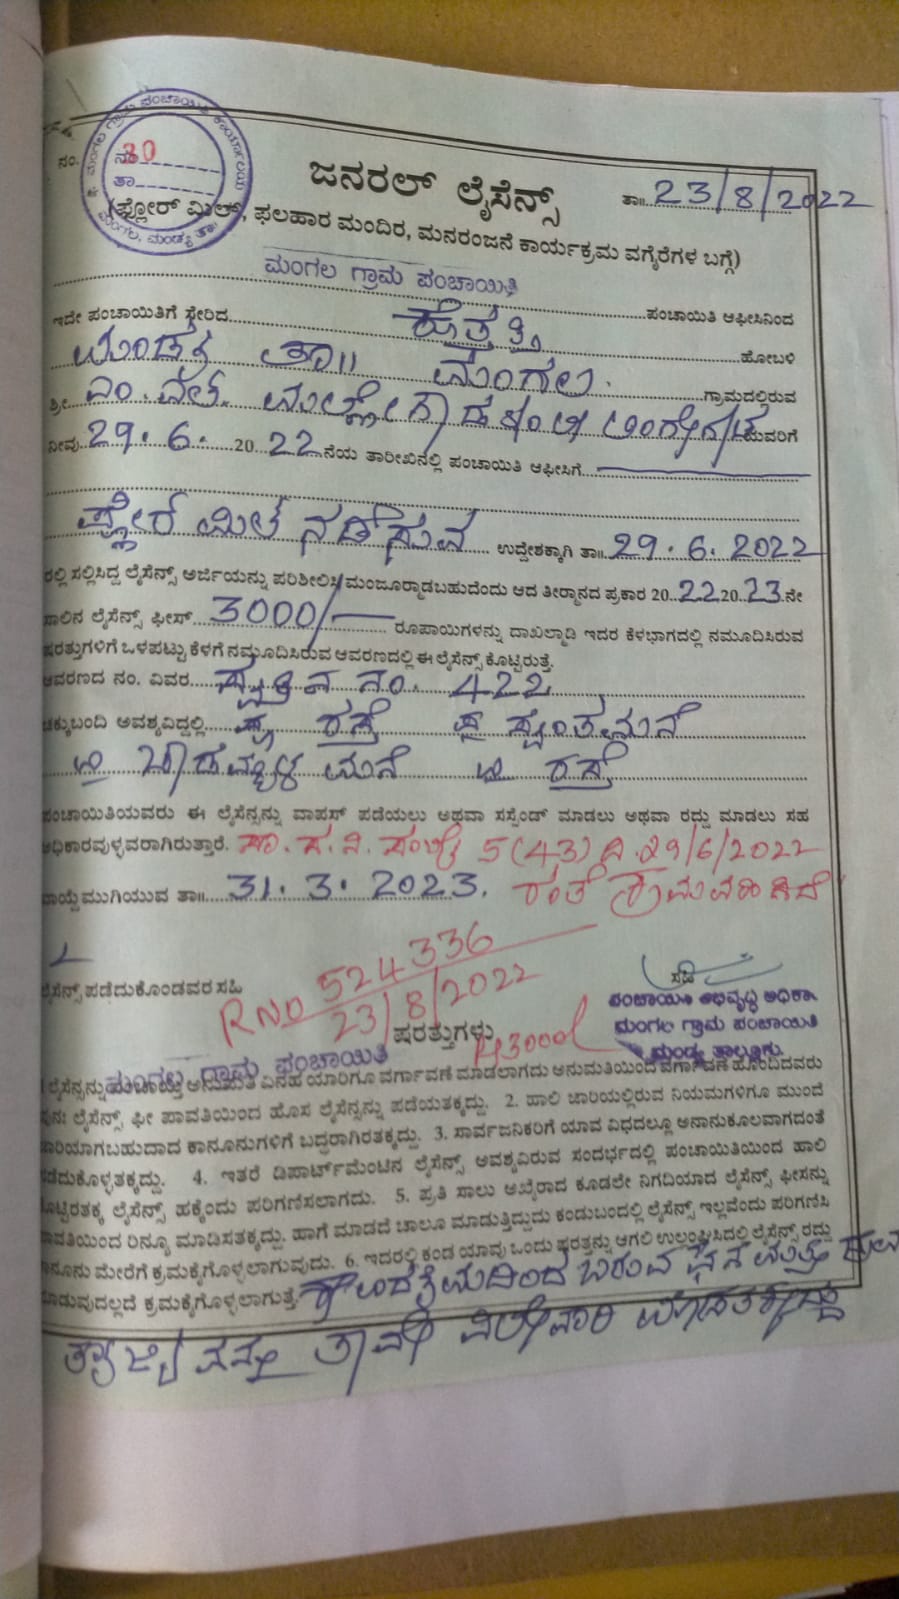 ಮಂಗಲ ಗ್ರಾಮ ಪಂಚಾಯಿತಿ ಕಾರ್ಯಾಲಯ
ಮಂಗಲ, ಮಂಡ್ಯ ತಾ.
ನಂ. ನಂ 80
ತಾ
ಜನರಲ್ ಲೈಸೆನ್ಸ್ ತಾ॥ 23/8/2022
(ಫ್ಲೋರ್ ಮಿಲ್, ಫಲಹಾರ ಮಂದಿರ, ಮನರಂಜನೆ ಕಾರ್ಯಕ್ರಮ ವಗೈರೆಗಳ ಬಗ್ಗೆ)
ಮಂಗಲ ಗ್ರಾಮ ಪಂಚಾಯಿತಿ ಪಂಚಾಯಿತಿ ಆಫೀಸಿನಿಂದ
ಇದೇ ಪಂಚಾಯಿತಿಗೆ ಸ್ಥೇರಿದ ಕೊತ್ತತ್ತಿ ಹೋಬಳಿ
ಮಂಡ್ಯ ತಾ॥ ಮಂಗಲ ಗ್ರಾಮದಲ್ಲಿರುವ
ಶ್ರೀ ಎಂ. ಎಲ್. ಯವರಿಗೆ
ನೀವು 29.6. 2022 ನೆಯ ತಾರೀಖಿನಲ್ಲಿ ಪಂಚಾಯಿತಿ ಆಫೀಸಿಗೆ
ಫ್ಲೋರ್ ಮಿಲ್ ನಡೆಸುವ ಉದ್ದೇಶಕ್ಕಾಗಿ ತಾ॥ 29.6.2022
ರಲ್ಲಿ ಸಲ್ಲಿಸಿದ್ದ ಲೈಸೆನ್ಸ್ ಅರ್ಜಿಯನ್ನು ಪರಿಶೀಲಿಸಿ ಮಂಜೂರ್‍ಮಾಡಬಹುದೆಂದು ಆದ ತೀರ್‍ಮಾನದ ಪ್ರಕಾರ 2022 2023 ನೇ
ಸಾಲಿನ ಲೈಸೆನ್ಸ್ ಫೀಸ್ 3000/- ರೂಪಾಯಿಗಳನ್ನು ದಾಖಲ್ಮಾಡಿ ಇದರ ಕೆಳಭಾಗದಲ್ಲಿ ನಮೂದಿಸಿರುವ
ಷರತ್ತುಗಳಿಗೆ ಒಳಪಟ್ಟು ಕೆಳಗೆ ನಮೂದಿಸಿರುವ ಆವರಣದಲ್ಲಿ ಈ ಲೈಸೆನ್ಸ್ ಕೊಟ್ಟಿರುತ್ತೆ.
ಆವರಣದ ನಂ. ವಿವರ ಸ್ವತ್ತಿನ ನಂ. 422
ಚಕ್ಕುಬಂದಿ ಅವಶ್ಯವಿದ್ದಲ್ಲಿ ರಸ್ತೆ ಸ್ವಂತ ಮನೆ
ಮನೆ ರಸ್ತೆ
ಪಂಚಾಯಿತಿಯವರು ಈ ಲೈಸೆನ್ಸನ್ನು ವಾಪಸ್ ಪಡೆಯಲು ಅಥವಾ ಸಸ್ಪೆಂಡ್ ಮಾಡಲು ಅಥವಾ ರದ್ದು ಮಾಡಲು ಸಹ
ಅಧಿಕಾರವುಳ್ಳವರಾಗಿರುತ್ತಾರೆ. ಸಾ. ಸ. ನಿ. ಸಂಖ್ಯೆ 5(43) ದಿ. 29/6/2022
ವಾಯ್ದೆ ಮುಗಿಯುವ ತಾ॥ 31.3.2023. ರಂತೆ ಕ್ರಮವಹಿಸಿದೆ
ಲೈಸೆನ್ಸ್ ಪಡೆದುಕೊಂಡವರ ಸಹಿ
RNO 524336
23/8/2022
43000/
ಸಹಿ
ಪಂಚಾಯಿತಿ ಅಭಿವೃದ್ಧಿ ಅಧಿಕಾರಿ
ಮಂಗಲ ಗ್ರಾಮ ಪಂಚಾಯಿತಿ
ಮಂಡ್ಯ ತಾಲ್ಲೂಕು.
ಷರತ್ತುಗಳು
ಮಂಗಲ ಗ್ರಾಮ ಪಂಚಾಯಿತಿ
1 ಲೈಸೆನ್ಸನ್ನು ಪಂಚಾಯಿತಿ ಅನುಮತಿ ವಿನಹ ಯಾರಿಗೂ ವರ್ಗಾವಣೆ ಮಾಡಲಾಗದು ಅನುಮತಿಯಿಂದ ವರ್ಗಾವಣೆ ಹೊಂದಿದವರು
ಪುನಃ ಲೈಸೆನ್ಸ್ ಫೀ ಪಾವತಿಯಿಂದ ಹೊಸ ಲೈಸೆನ್ಸನ್ನು ಪಡೆಯತಕ್ಕದ್ದು. 2. ಹಾಲಿ ಜಾರಿಯಲ್ಲಿರುವ ನಿಯಮಗಳಿಗೂ ಮುಂದೆ
ಜಾರಿಯಾಗಬಹುದಾದ ಕಾನೂನುಗಳಿಗೆ ಬದ್ಧರಾಗಿರತಕ್ಕದ್ದು. 3. ಸಾರ್ವಜನಿಕರಿಗೆ ಯಾವ ವಿಧದಲ್ಲೂ ಅನಾನುಕೂಲವಾಗದಂತೆ
ನಡೆದುಕೊಳ್ಳತಕ್ಕದ್ದು. 4. ಇತರೆ ಡಿಪಾರ್ಟ್‌ಮೆಂಟಿನ ಲೈಸೆನ್ಸ್ ಅವಶ್ಯವಿರುವ ಸಂದರ್ಭದಲ್ಲಿ ಪಂಚಾಯಿತಿಯಿಂದ ಹಾಲಿ
ಕೊಟ್ಟಿರತಕ್ಕ ಲೈಸೆನ್ಸ್ ಹಕ್ಕೆಂದು ಪರಿಗಣಿಸಲಾಗದು. 5. ಪ್ರತಿ ಸಾಲು ಅಖೈರಾದ ಕೂಡಲೇ ನಿಗದಿಯಾದ ಲೈಸೆನ್ಸ್ ಫೀಸನ್ನು
ಪಾವತಿಯಿಂದ ರಿನ್ಯೂ ಮಾಡಿಸತಕ್ಕದ್ದು. ಹಾಗೆ ಮಾಡದೆ ಚಾಲೂ ಮಾಡುತ್ತಿದ್ದುದು ಕಂಡುಬಂದಲ್ಲಿ ಲೈಸೆನ್ಸ್ ಇಲ್ಲವೆಂದು ಪರಿಗಣಿಸಿ
ಕಾನೂನು ಮೇರೆಗೆ ಕ್ರಮಕೈಗೊಳ್ಳಲಾಗುವುದು. 6. ಇದರಲ್ಲಿ ಕಂಡ ಯಾವು ಒಂದು ಷರತ್ತನ್ನು ಆಗಲಿ ಉಲ್ಲಂಘಿಸಿದಲ್ಲಿ ಲೈಸೆನ್ಸ್ ರದ್ದು
ಮಾಡುವುದಲ್ಲದೆ ಕ್ರಮಕೈಗೊಳ್ಳಲಾಗುತ್ತೆ. ಬರುವ ಘನ ಮತ್ತು
ತ್ಯಾಜ್ಯವನ್ನು ತಾವೇ ವಿಲೇವಾರಿ ಮಾಡತಕ್ಕದ್ದು